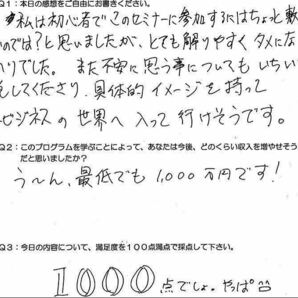 Q1:本日の感想をご自由にお書きください。
私は初心者でこのセミナーに参加するにはちょっと敷
のでは?と思いましたが、とても解りやすくタメにな
りでした。また不安に思う事についてもいちい
してくださり、具体的イメージを持って
ビジネスの世界へ入って行けそうです。
Q2:このプログラムを学ぶことによって、あなたは今後、どのくらい収入を増やせそう
だと思いましたか?
う〜ん、最低でも1,000万円です!
Q3:今日の内容について、満足度を100点満点で採点して下さい。
1000点でしょ。やっぱ